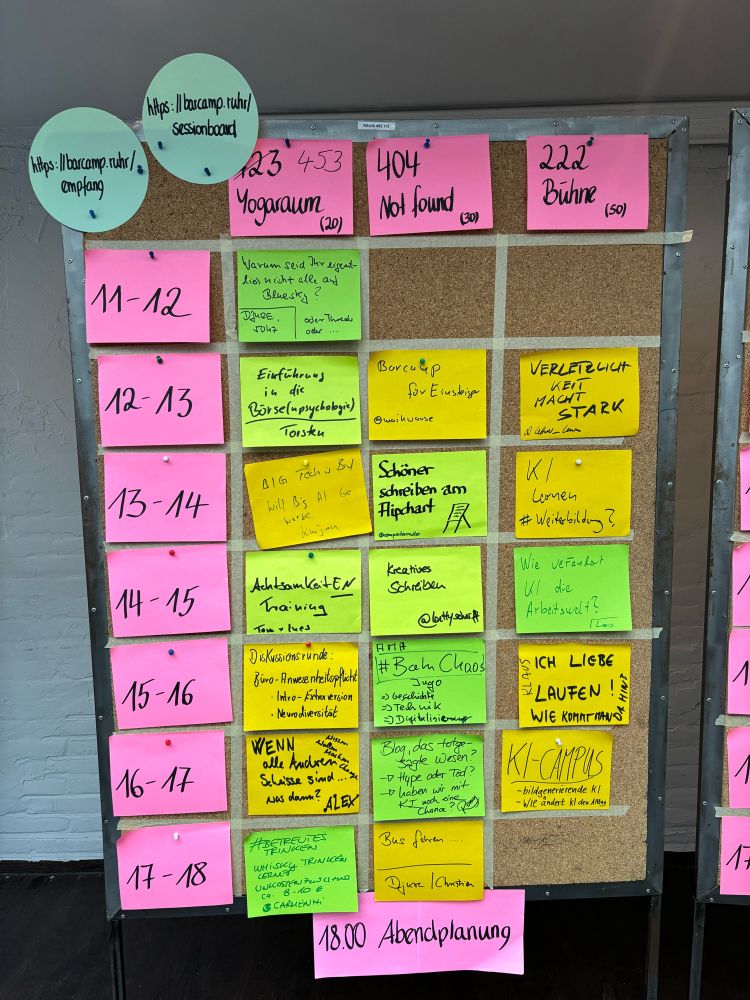 https://barcamp.ruhr/
sessionboard
https://barcamp.ruhr/
empfang
123 453
Yogaraum
(20)
404
Not found (30)
222
Bühne
(50)
11-12
Warum seid Ihr eigent-
lich nicht alle auf
Bluesky?
oder Threads
oder ...
12-13
Einführung
in die
Börse(npsychologie)
Torsten
Barcamp
für Einsteiger
VERLETZLICH
KEIT
MACHT
STARK
13-14
BIG Tech is Bad
Will Big AI be
worse
Schöner
schreiben am
Flipchart
KI
Lernen
#Weiterbildung?
14-15
AchtsamkeitEN
Training
Tom + Ines
Kreatives
Schreiben
Wie verändert
KI die
Arbeitswelt?
15-16
Diskussionsrunde:
Büro-Anwesenheitspflicht
• Intro-Extraversion
• Neurodiversität
AMA
#BahnChaos
Jugo
→ Geschichte
→ Technik
→ Digitalisierung
KLAUS
ICH LIEBE
LAUFEN!
WIE KOMMT MAN
DA HIN?
16-17
WENN
alle Anderen
Scheisse sind...
was dann?
ALEX
Blog, das totge-
sagte Wesen?
→ Hype oder Tod?
→ haben wir mit
KI noch eine
Chance?
KI-CAMPUS
- bildgenerierende KI
- Wie ändert KI den Alltag
17-18
#BETREUTES
TRINKEN
WHISKY TRINKEN
LERNEN
UNKOSTENZUSCHUSS
ca. 8-10 €
CARMEN
Bus fahren ...
Djure/Christian
18.00 Abendplanung